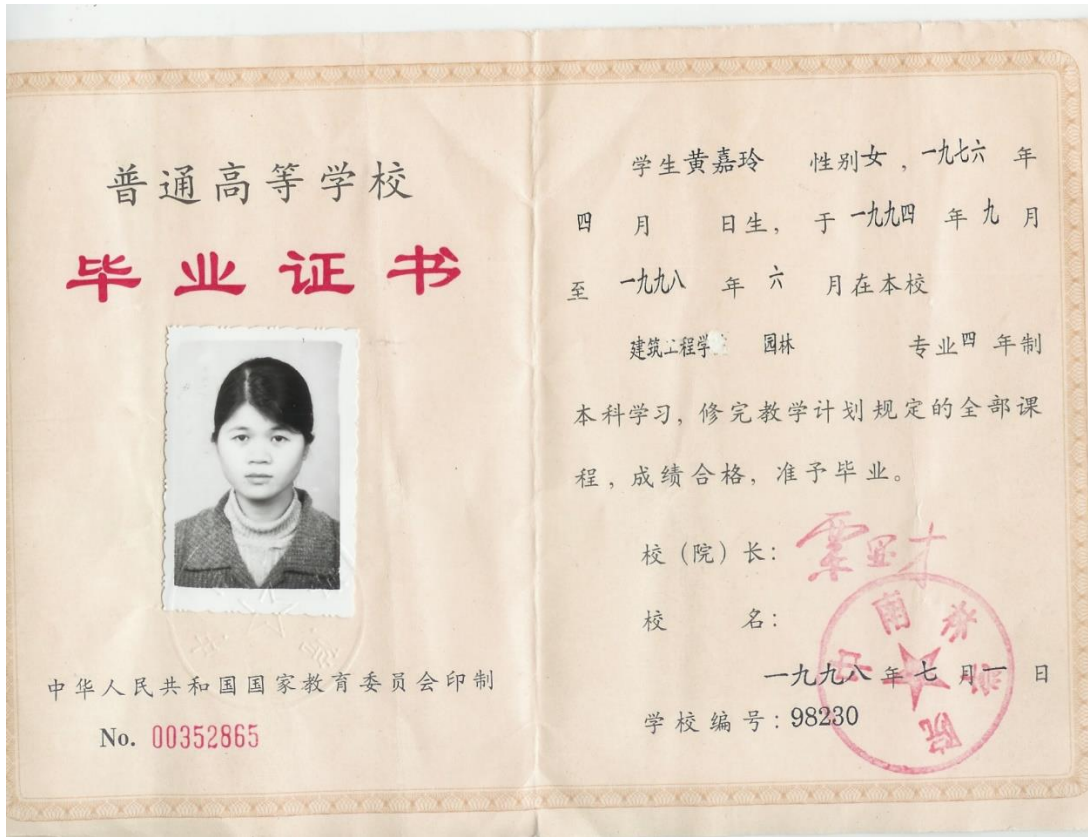 普通高等学校
毕业证书
中华人民共和国国家教育委员会印制
No. 00352865
学生黄嘉玲 性别女，一九七六 年
四 月 日生，于 一九九四 年 九 月
至 一九九八 年 六 月在本校
建筑工程学 园林 专业四 年制
本科学习，修完教学计划规定的全部课
程，成绩合格，准予毕业。
校（院）长：
校 名：
一九九八 年 七 月 一 日
学校编号：98230